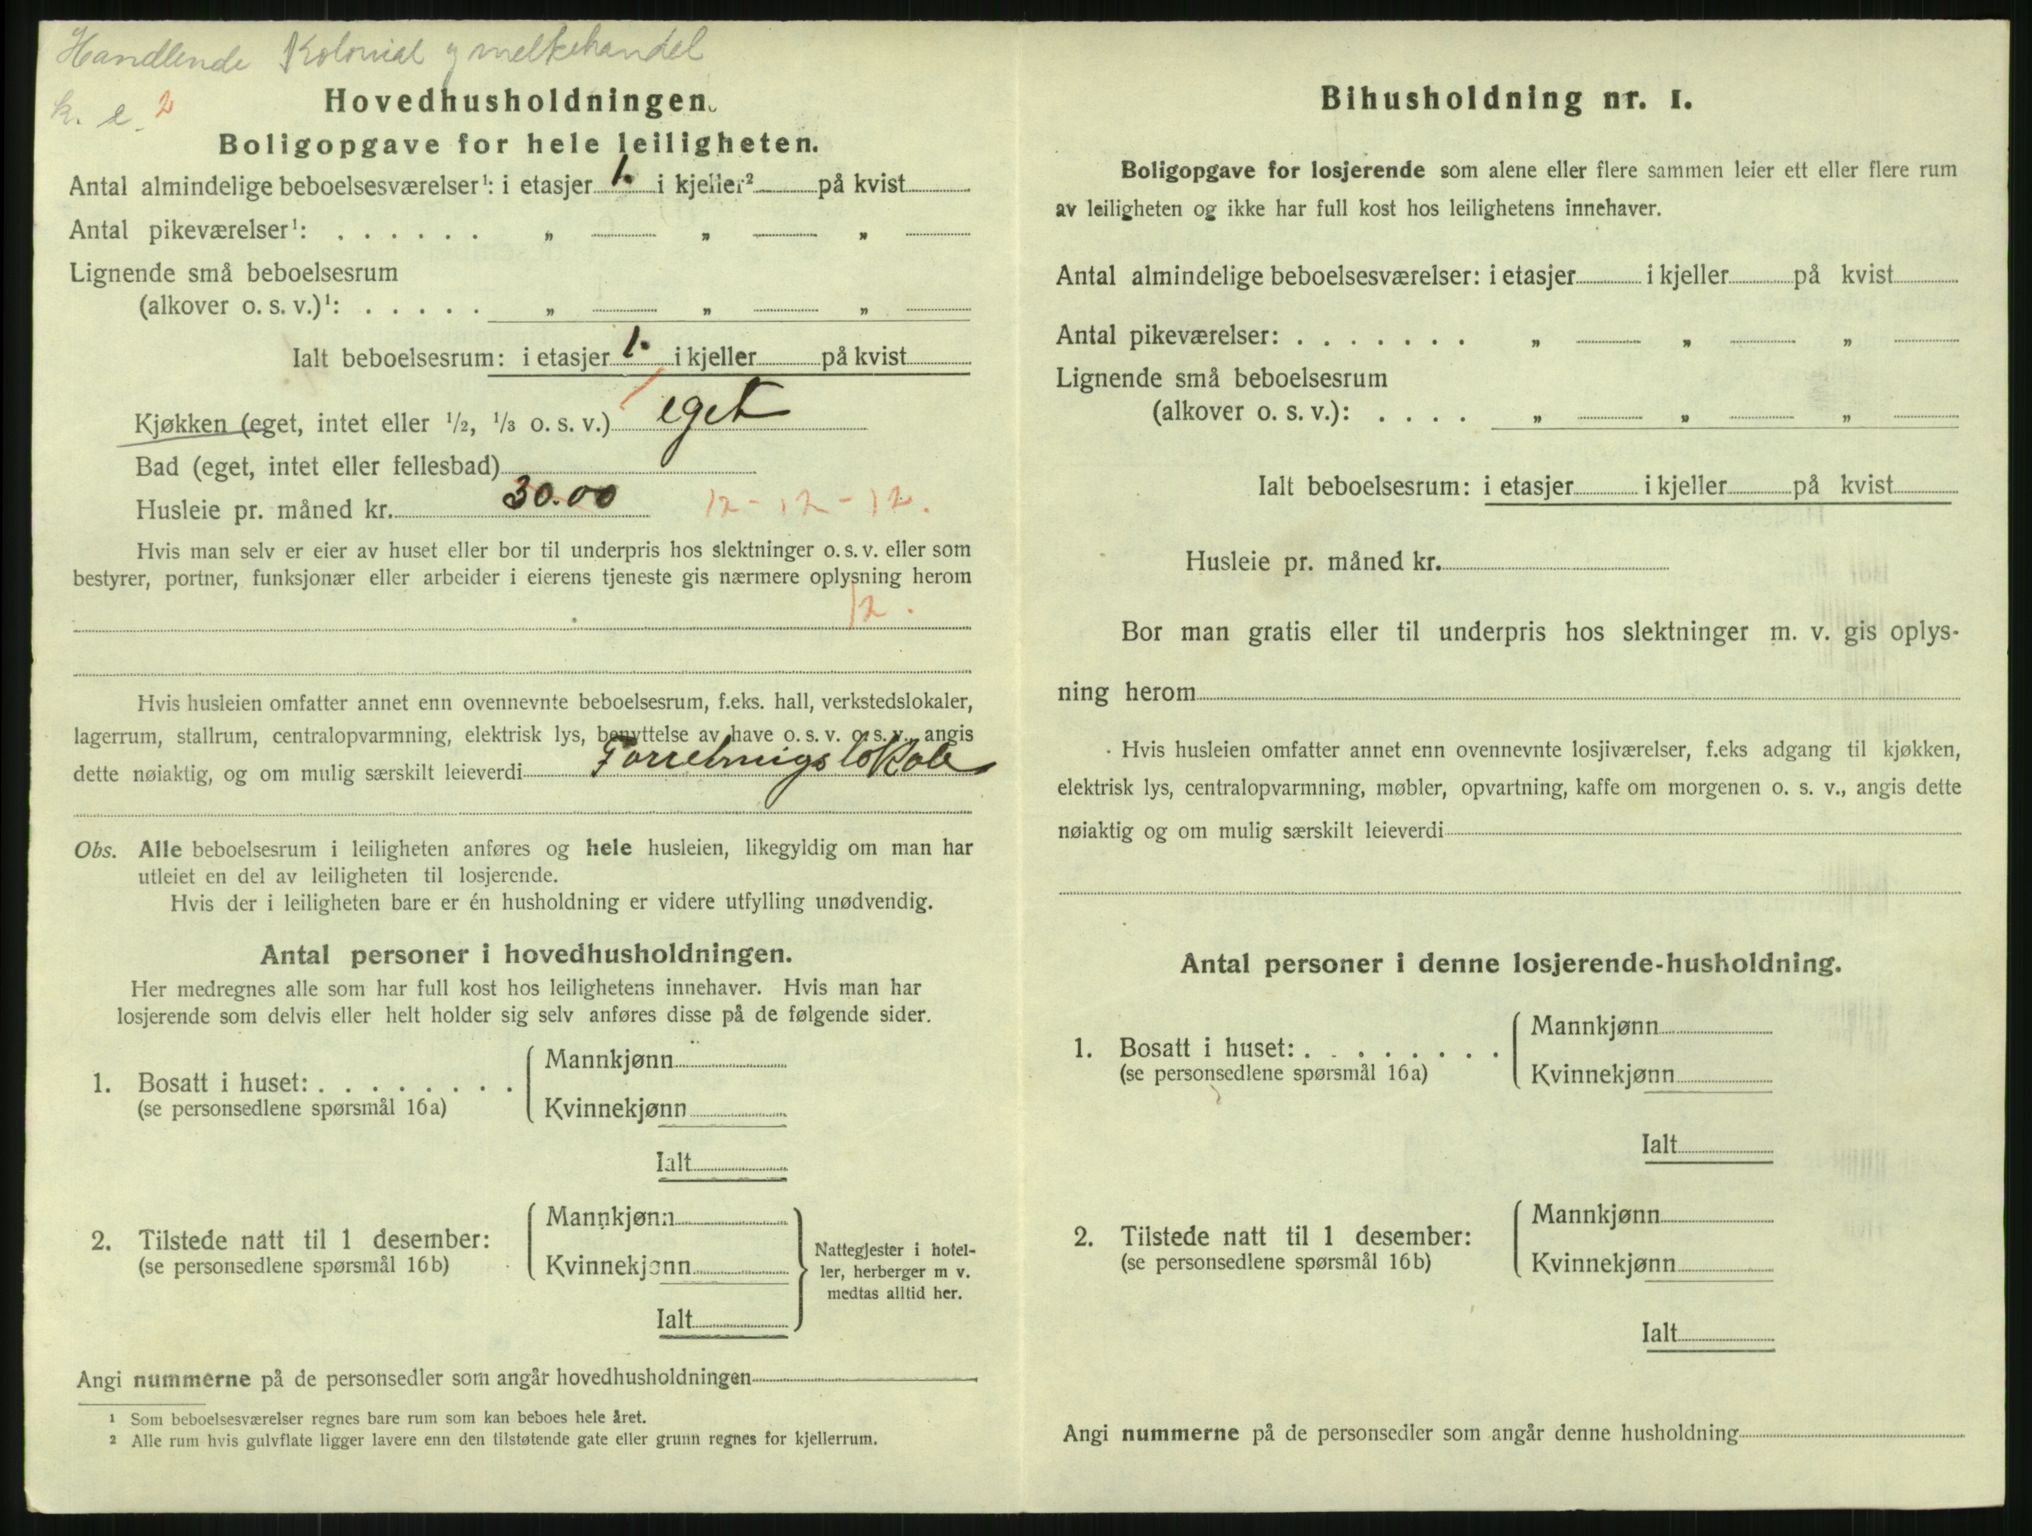 Handlende Kolonial og melkehandel
k. e. 2
Hovedhusholdningen.
Boligopgave for hele leiligheten.
Antal almindelige beboelsesværelser¹: i etasjer 1. i kjeller² på kvist
Antal pikeværelser¹: . . . . . . „ „ „
Lignende små beboelsesrum
(alkover o. s. v.)¹: . . . . . „ „ „
Ialt beboelsesrum: i etasjer 1. i kjeller på kvist
Kjøkken (eget, intet eller 1/2, 1/3 o. s. v.) eget
Bad (eget, intet eller fellesbad)
Husleie pr. måned kr. 30.00 12 - 12 - 12.
Hvis man selv er eier av huset eller bor til underpris hos slektninger o. s. v. eller som
bestyrer, portner, funksjonær eller arbeider i eierens tjeneste gis nærmere oplysning herom
12.
Hvis husleien omfatter annet enn ovennevnte beboelsesrum, f.eks. hall, verkstedslokaler,
lagerrum, stallrum, centralopvarmning, elektrisk lys, benyttelse av have o. s. v. o. s. v., angis
dette nøiaktig, og om mulig særskilt leieverdi Forretningslokale
Obs. Alle beboelsesrum i leiligheten anføres og hele husleien, likegyldig om man har
utleiet en del av leiligheten til losjerende.
Hvis der i leiligheten bare er én husholdning er videre utfylling unødvendig.
Antal personer i hovedhusholdningen.
Her medregnes alle som har full kost hos leilighetens innehaver. Hvis man har
losjerende som delvis eller helt holder sig selv anføres disse på de følgende sider.
1. Bosatt i huset: . . . . . . . .
(se personsedlene spørsmål 16a)
Mannkjønn
Kvinnekjønn
Ialt
2. Tilstede natt til 1 desember:
(se personsedlene spørsmål 16b)
Mannkjønn
Kvinnekjønn
Ialt
Nattegjester i hotel-
ler, herberger m v.
medtas alltid her.
Angi nummerne på de personsedler som angår hovedhusholdningen
¹ Som beboelsesværelser regnes bare rum som kan beboes hele året.
² Alle rum hvis gulvflate ligger lavere enn den tilstøtende gate eller grunn regnes for kjellerrum.
Bihusholdning nr. 1.
Boligopgave for losjerende som alene eller flere sammen leier ett eller flere rum
av leiligheten og ikke har full kost hos leilighetens innehaver.
Antal almindelige beboelsesværelser: i etasjer i kjeller på kvist
Antal pikeværelser: . . . . . . . „ „ „
Lignende små beboelsesrum
(alkover o. s. v.): . . . . „ „ „
Ialt beboelsesrum: i etasjer i kjeller på kvist
Husleie pr. måned kr.
Bor man gratis eller til underpris hos slektninger m. v. gis oplys-
ning herom
Hvis husleien omfatter annet enn ovennevnte losjiværelser, f.eks adgang til kjøkken,
elektrisk lys, centralopvarmning, møbler, opvartning, kaffe om morgenen o. s. v., angis dette
nøiaktig og om mulig særskilt leieverdi
Antal personer i denne losjerende-husholdning.
1. Bosatt i huset: . . . . . . . .
(se personsedlene spørsmål 16a)
Mannkjønn
Kvinnekjønn
Ialt
2. Tilstede natt til 1 desember:
(se personsedlene spørsmål 16b)
Mannkjønn
Kvinnekjønn
Ialt
Angi nummerne på de personsedler som angår denne husholdning